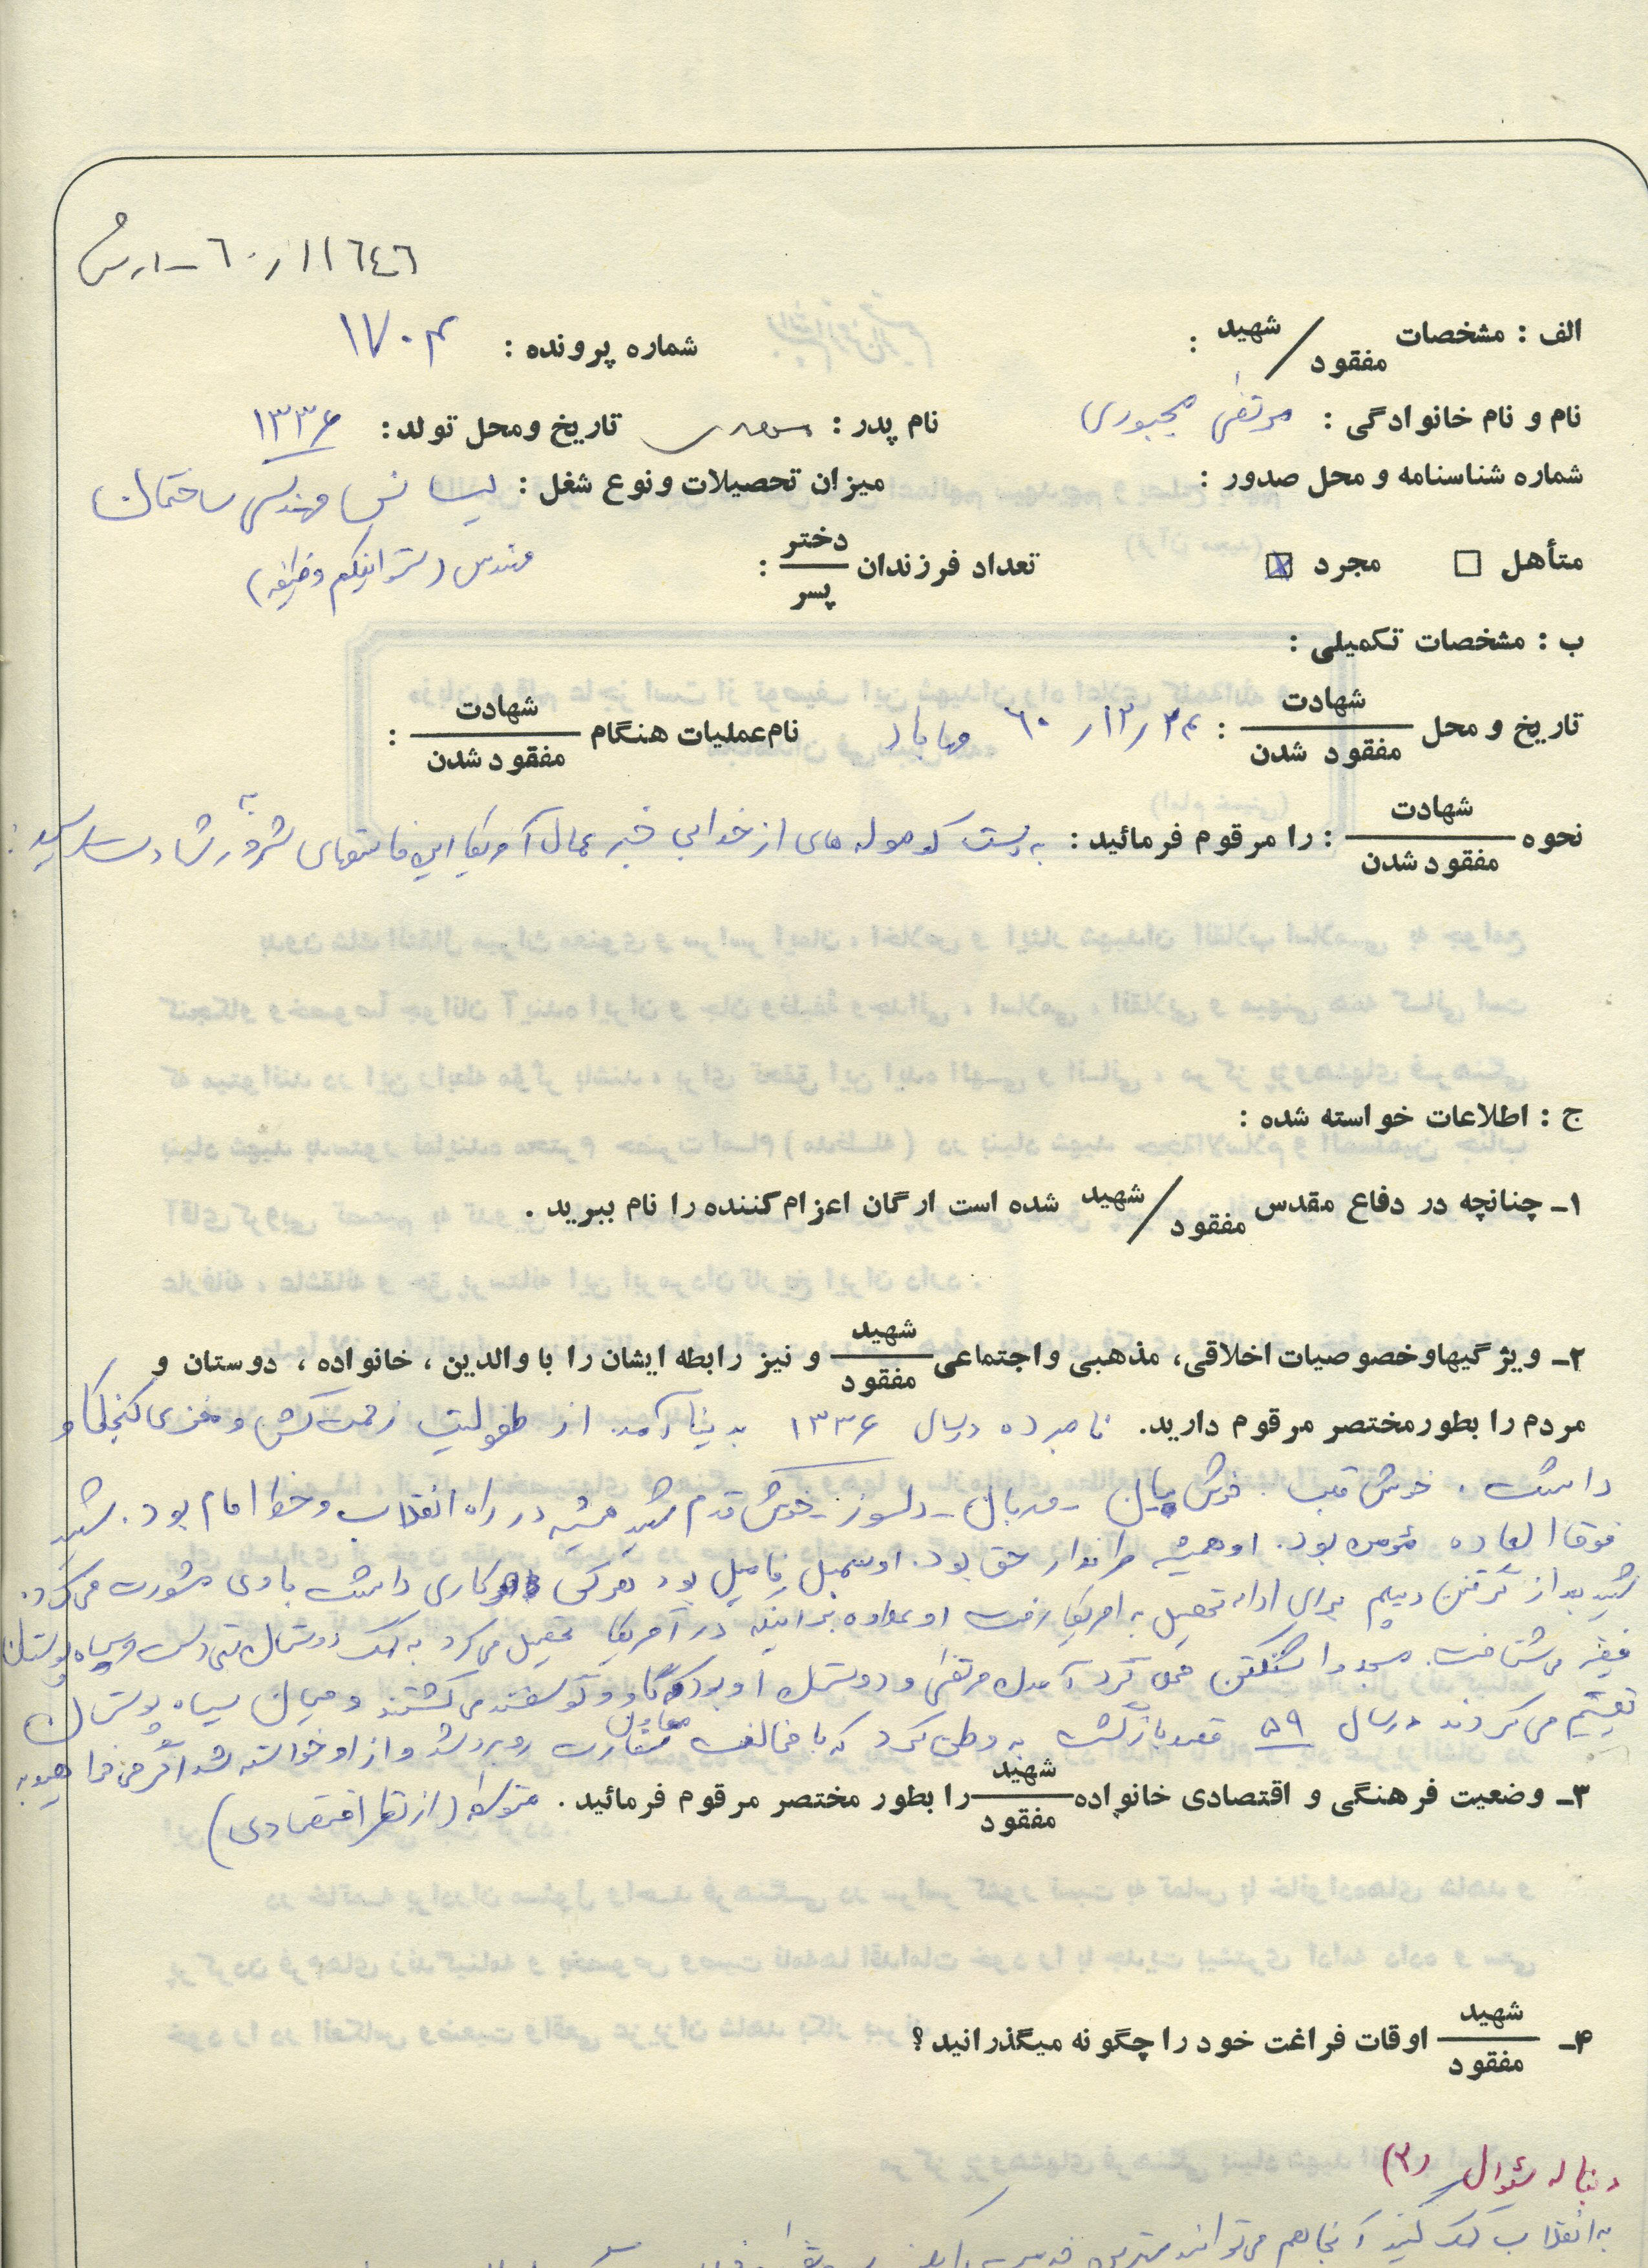 ۱۱۶۴۶ر۶۰
الف : مشخصات شهید / مفقود :
شماره پرونده : ۱۷۰۴
نام و نام خانوادگی : مرتضی مجبوری نام پدر : تاریخ ومحل تولد : ۱۳۳۶
شماره شناسنامه و محل صدور : میزان تحصیلات و نوع شغل : لیسانس مهندسی ساختمان
متأهل ☐ مجرد ☒ تعداد فرزندان دختر / پسر : مهندس ( وظیفه)
ب : مشخصات تکمیلی :
تاریخ و محل شهادت / مفقود شدن : ۲۴ر۱۲ر ۶۰ مهاباد نام عملیات هنگام شهادت / مفقود شدن :
نحوه شهادت / مفقود شدن : را مرقوم فرمائید : به دست کوموله های از خدابی خبر عمال آمریکا این به شهادت رسید
ج : اطلاعات خواسته شده :
۱ـ چنانچه در دفاع مقدس شهید / مفقود شده است ارگان اعزام کننده را نام ببرید .
۲ـ ویژگیهاوخصوصیات اخلاقی، مذهبی واجتماعی شهید / مفقود و نیز رابطه ایشان را با والدین ، خانواده ، دوستان و
مردم را بطورمختصر مرقوم دارید. نامبرده درسال ۱۳۳۶ بدنیا آمد. از طفولیت زحمت کش و مغزی کنجکاو
داشت . خوش قلب . خوش بیان - مهربان - دلسوز - خوش قدم شهید همیشه در راه انقلاب و خط امام بود . شهید
فوق العاده مومن بود . او همیشه طرفدار حق بود . او سمبل فامیل بود هرکس کاری داشت با وی مشورت می کرد .
شهید بعد از گرفتن دیپلم برای ادامه تحصیل به امریکا رفت او علاوه بر اینکه در آمریکا تحصیل می کرد به کمک دوستان تهی دست و سیاه پوستان
فقیر می شتافت . مسجد واشنگتن محل گرد آمدن مرتضی و دوستان او بود که گاو و گوسفند می کشتند و میان سیاه پوستان
تقسیم می کردند در سال ۵۹ قصد بازگشت به وطن کرد که با مخالفت معاون سفارت روبرو شد و از او خواسته شد اگر می خواهید به
۳ـ وضعیت فرهنگی و اقتصادی خانواده شهید / مفقود را بطور مختصر مرقوم فرمائید . متوسط (از نظر اقتصادی)
۴ـ شهید / مفقود اوقات فراغت خود را چگونه میگذرانید ؟
دنباله سئوال (۲)
به انقلاب کمک کنید آنجا هم می توانید بهترین